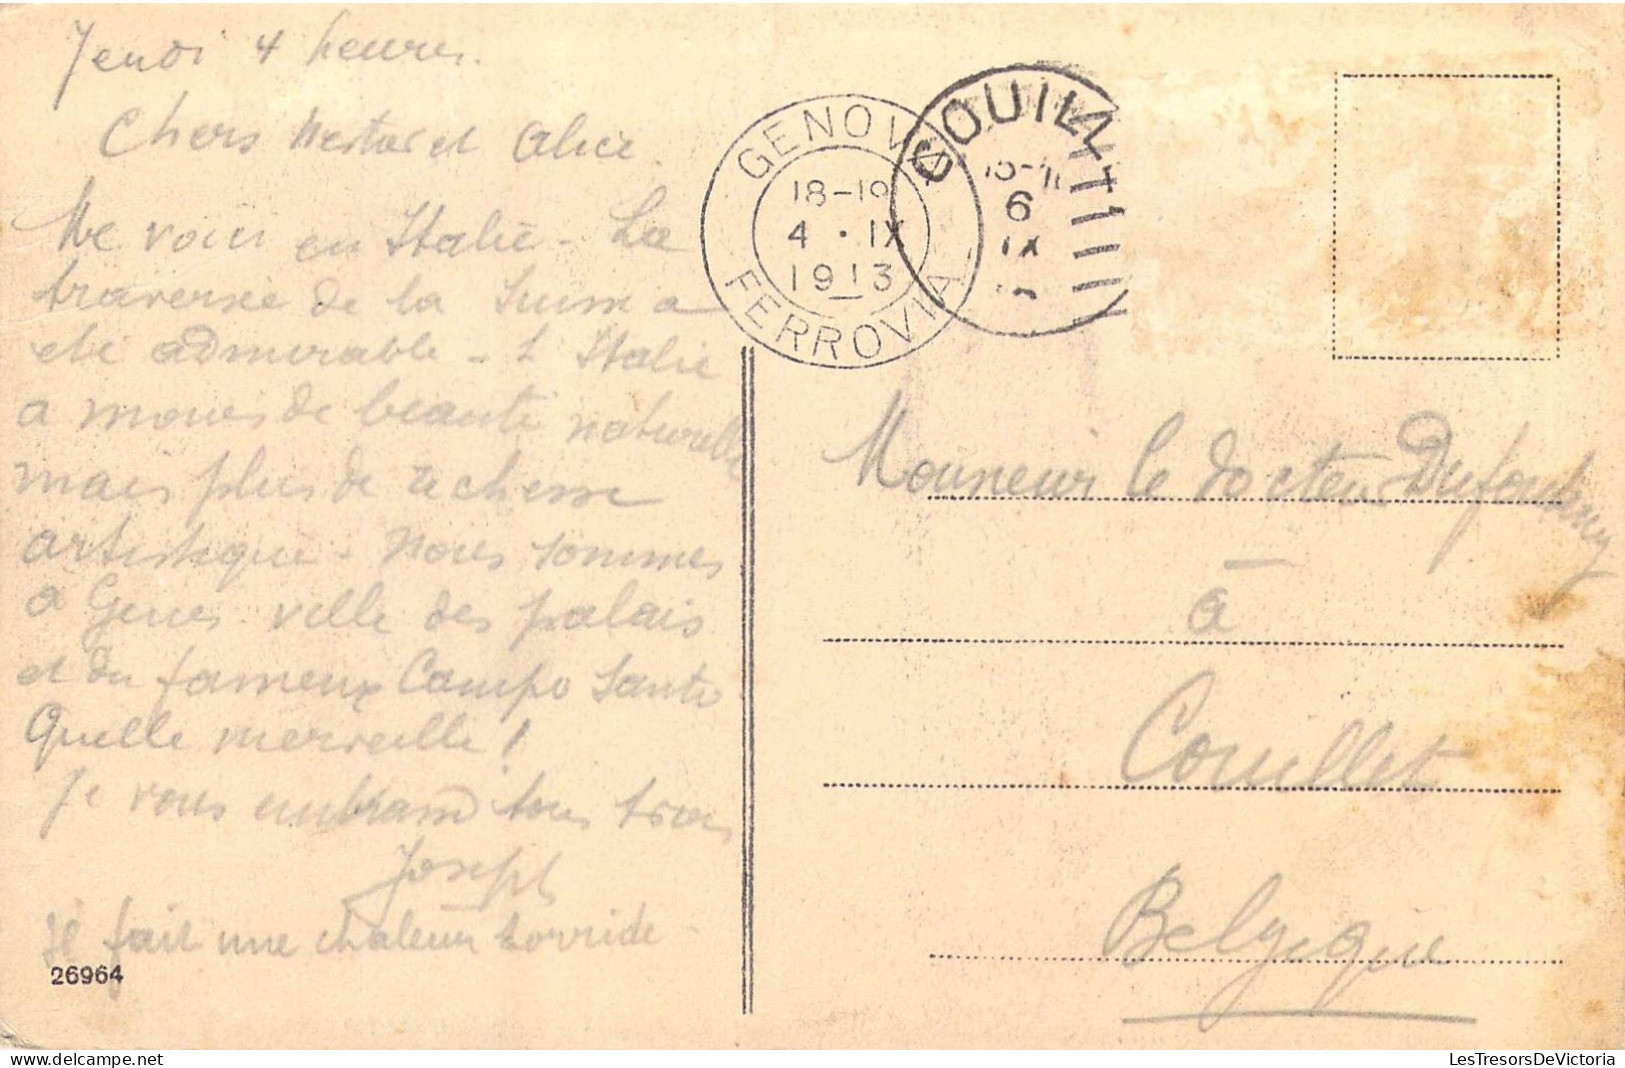 Jeudi 4 heures.
Chers Nestor et Alice.
Me voici en Italie - La
traversée de la Suisse a
été admirable - L'Italie
a moins de beauté naturelle
mais plus de richesse
artistique - Nous sommes
à Gênes - ville des palais
et du fameux Campo Santo
Quelle merveille !
Je vous embrasse tous trois
Joseph
Il fait une chaleur torride -
26964
GENOVA
18-19
4 · IX
1913
FERROVIA
COUILLET
6
IX
Monsieur le docteur
à
Couillet
Belgique
LesTresorsDeVictoria